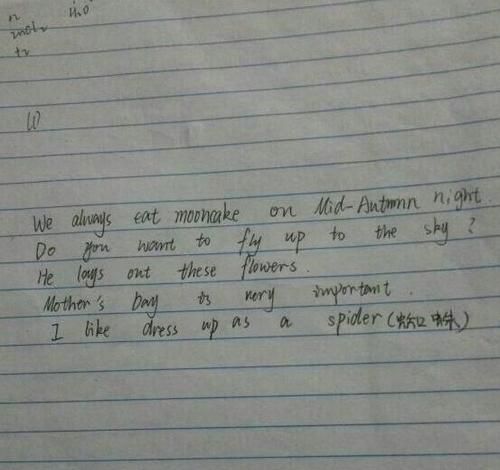 n
H2O
mol
tr
(1)
We always eat mooncake on Mid-Autumn night.
Do you want to fly up to the sky?
He lays out these flowers.
Mother's Day is very important.
I like dress up as a spider (蜘蛛)